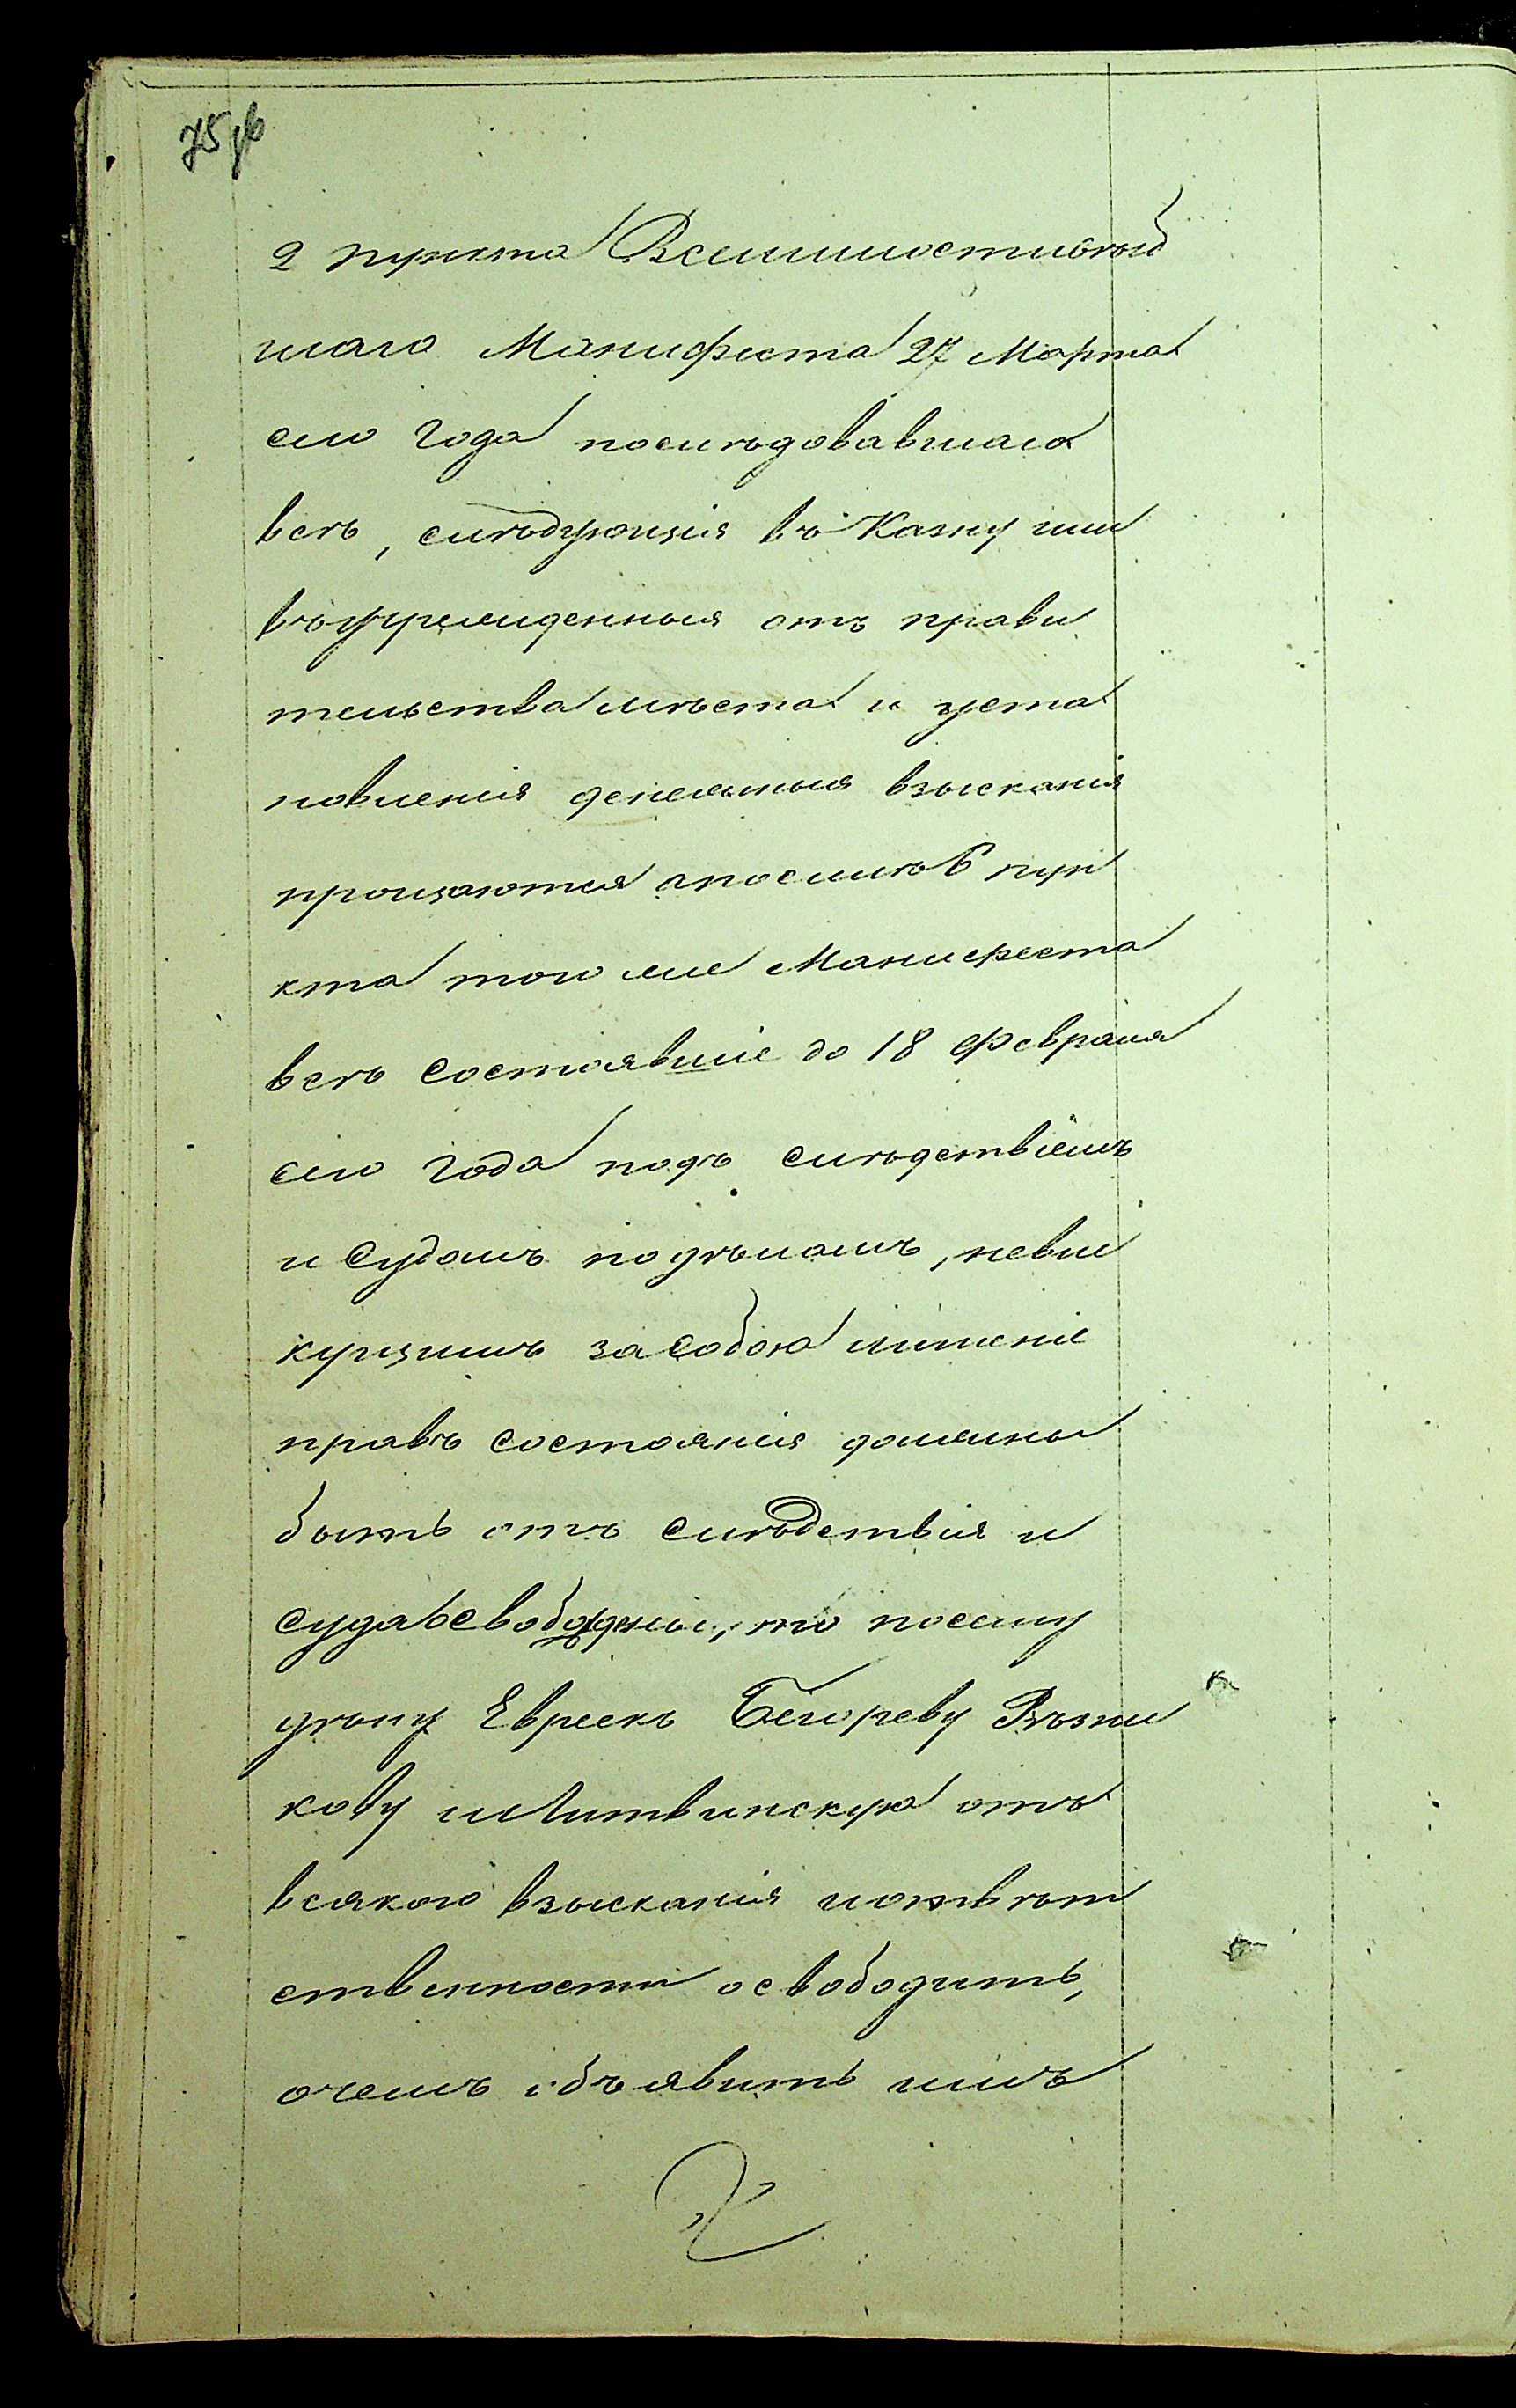 75 об
2 пункта Всемилостивѣй
шаго Манифеста 27 Марта
сего года последовавшаго
всѣ, слѣдующія въ Казну или
въ учрежденныя отъ прави
тельства мѣста и уста
новленія денежныя взысканія
прощаются апосилѣ 6 пун
кта того же Манифеста
всѣ состоявшіе до 18 Февраля
сего года подъ слѣдствіемъ
и Судомъ подѣламъ, невле
кущимъ засобою лишеніе
правъ состоянія должны
быть отъ слѣдствія и
суда освобождены, то посему
дѣлу Евреекъ Рѣзни
кову и Литвинскую отъ
всякаго взысканія иотвѣт
ственности освободить,
очемъ объявить имъ